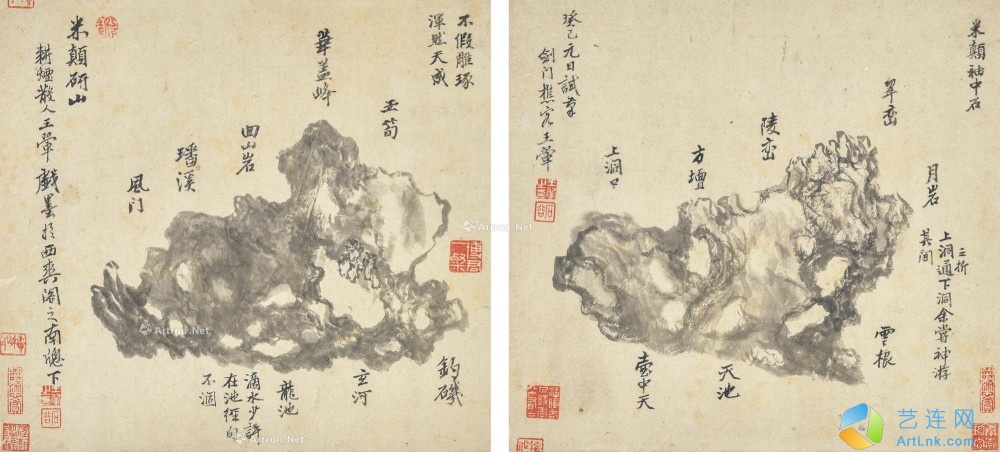 不假雕琢
渾然天成
華盖峰
玉筍
米顛研山
耕煙散人王翬戲墨於西爽閣之南牕下
回山岩
璠溪
風门
釣磯
玄河
龍池
滴水少許
在池徑旬
不涸
Artron.Net
Artron.Net
Artron.Net
Artron.Net
米顛袖中石
翠巒
月岩
三折
上洞通下洞余嘗神游
其间
雲根
陵巒
方壇
上洞口
天池
壺中天
癸已元日試筆
剑门樵客王翬
艺连网
ArtLnk.com